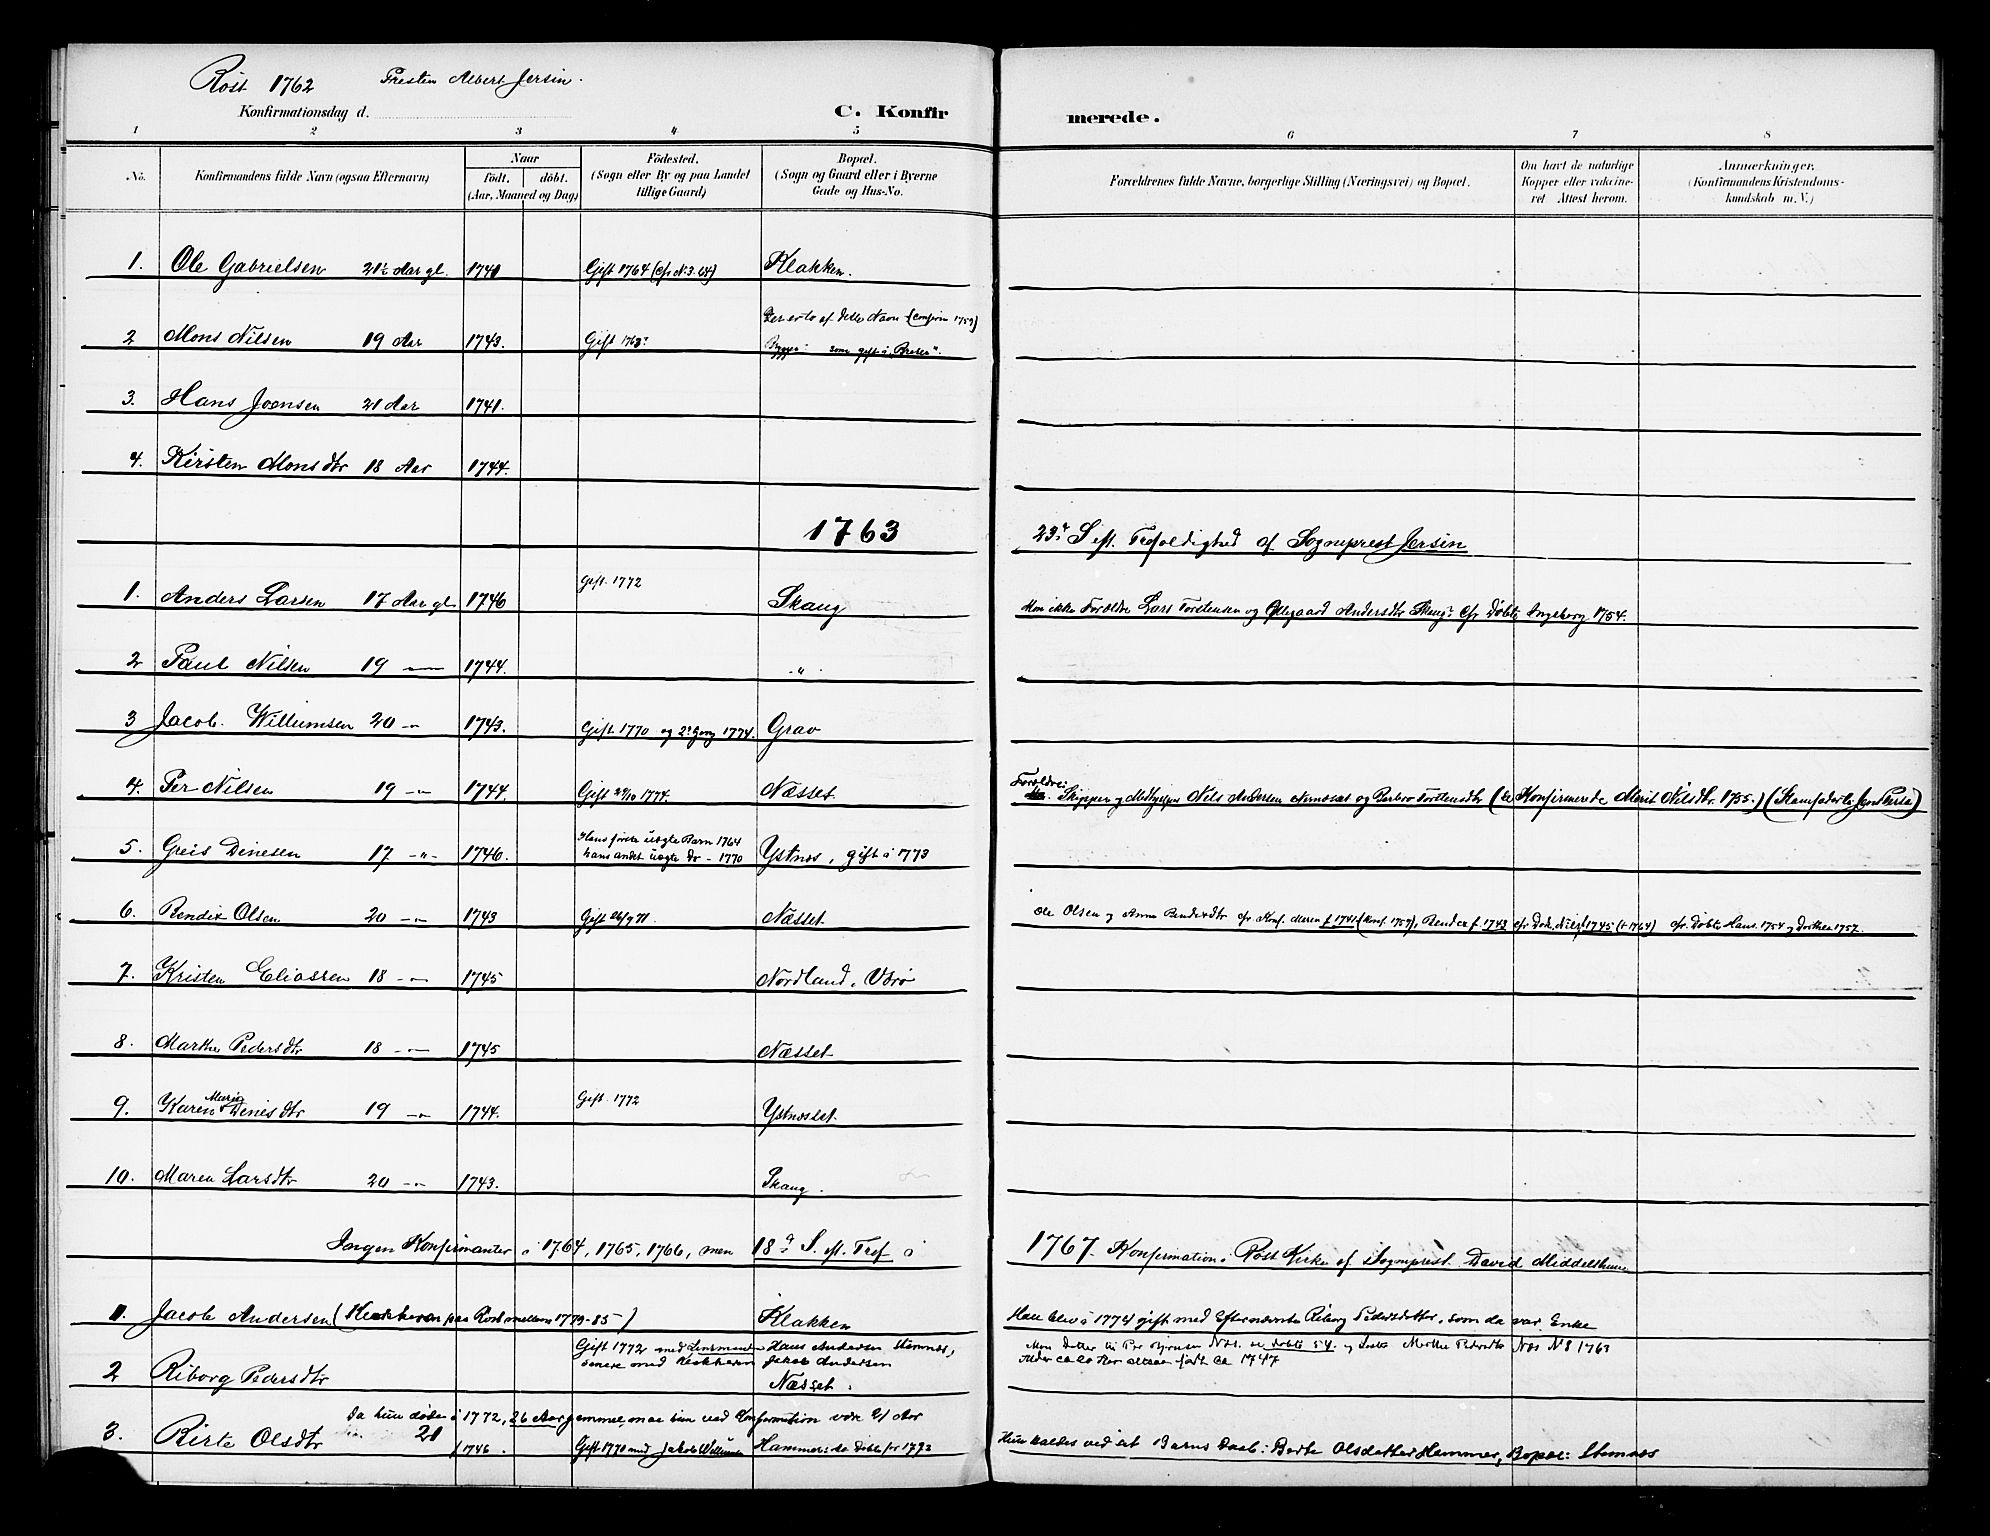 Røst 1762 Presten Albert Jersin.
Konfirmationsdag d.
C. Konfirmerede.
1 2 3 4 5 6 7 8
No.
Konfirmandens fulde Navn (ogsaa Efternavn)
Naar
födt. döbt.
(Aar, Maaned og Dag)
Födested.
(Sogn eller By og paa Landet
tillige Gaard)
Bopæl.
(Sogn og Gaard eller i Byerne
Gade og Hus-No.
Forældrenes fulde Navne, borgerlige Stilling (Næringsvei) og Bopæl.
Om havt de naturlige
Kopper eller vakcine-
ret Attest herom.
Anmærkninger.
(Konfirmandens Kristendoms-
kundskab m. V.)
1. Ole Gabrielsen 21½ Aar gl. 1741 Gift 1764 (cfr N. 3. 64) Klakken.
Der er to af dette Navn (confirm 1759)
2 Mons Nilsen 19 Aar 1743. Gift 1763? Byggen: som gift i "Brasen".
3. Hans Joensen 21 Aar 1741.
4. Kirsten Monsdtr 18 Aar 1744.
1763 23' S. eft. Trefoldighed af Sogneprest Jersin
1. Anders Larsen 17 Aar gl 1746 Gift. 1772 Skaug Mon ikke Forældre Lars Torstensen og Ollegaard Andersdtr Skaug? Cfr Døbte Ingeborg 1754.
2 Paul Nilsen 19 — 1744. "
3 Jacob. Willumsen 20 -"- 1743. Gift 1770 og 2' Gang 1774. Grav
Forældre:
4. Per Nilsen 19 -"- 1744. Gift 29/10 1774. Næsset Skipper og Medhjelper Nils Andersen Nernæset og Barbro Torstensdtr (se Konfirmerede Marit Nilsdtr. 1755.) (Stamfader til Jens Persa)
5. Greis Dinesen 17 -"- 1746. Hans første uægte Barn 1764
hans andet uægte do - 1770 Ystnæs, gift i 1773
6. Bendix Olsen 20 -"- 1743 Gift 26/9 71. Næsset Ole Olsen og Anna Bendixdtr cfr Konf. Maren f. 1741 (Konf. 1757), Bendix f. 1743 cfr Døde, Nils f 1745 (+ 1764) cfr. Døbte Hans. 1754 og Dorthea 1757.
7. Kristen Eliassen 18 -"- 1745 Nordland, Værø
8. Marthe Pedersdtr 18 -"- 1745 Næsset
9. Karen Marie Dinesdtr 19 -"- 1744. Gift. 1772 Ystnæsset.
10. Maren Larsdtr 20 -"- 1743. Skaug.
Ingen Konfirmanter i 1764, 1765, 1766, men 18d S. eft. Tref i 1767. Konfirmation i Røst Kirke af Sogneprest David Middelthun
1. Jacob Andersen (Kirkeværge paa Røst mellem 1779-85) Klakken Han blev i 1774 gift med Efternævnte Riborg Pedersdatter, som da var Enke
Gift 1772 med Lensmanden Hans Andersen Stamnæs,
senere med Kirkeværen Jakob Andersen
Mon Datter til Per Bjørnsen Næs. se døbte 54. og Søster Marthe Pedersdtr Næs N 8 1763
Alder ca 20 Aar altsaa født Ca 1747
2 Riborg Pedersdtr Næsset.
Da hun døde i 1772, 26 Aar gammel maa hun ved Konfirmation være 21 Aar
3. Birte Olsdtr 21 f 1746. Gift 1770 med Jakob Willumsen Hammer: da Døbte for 1773 Hun kaldes ved sit Barns Daab: Berte Olsdatter Hammer, Bopæl: Stamnæs